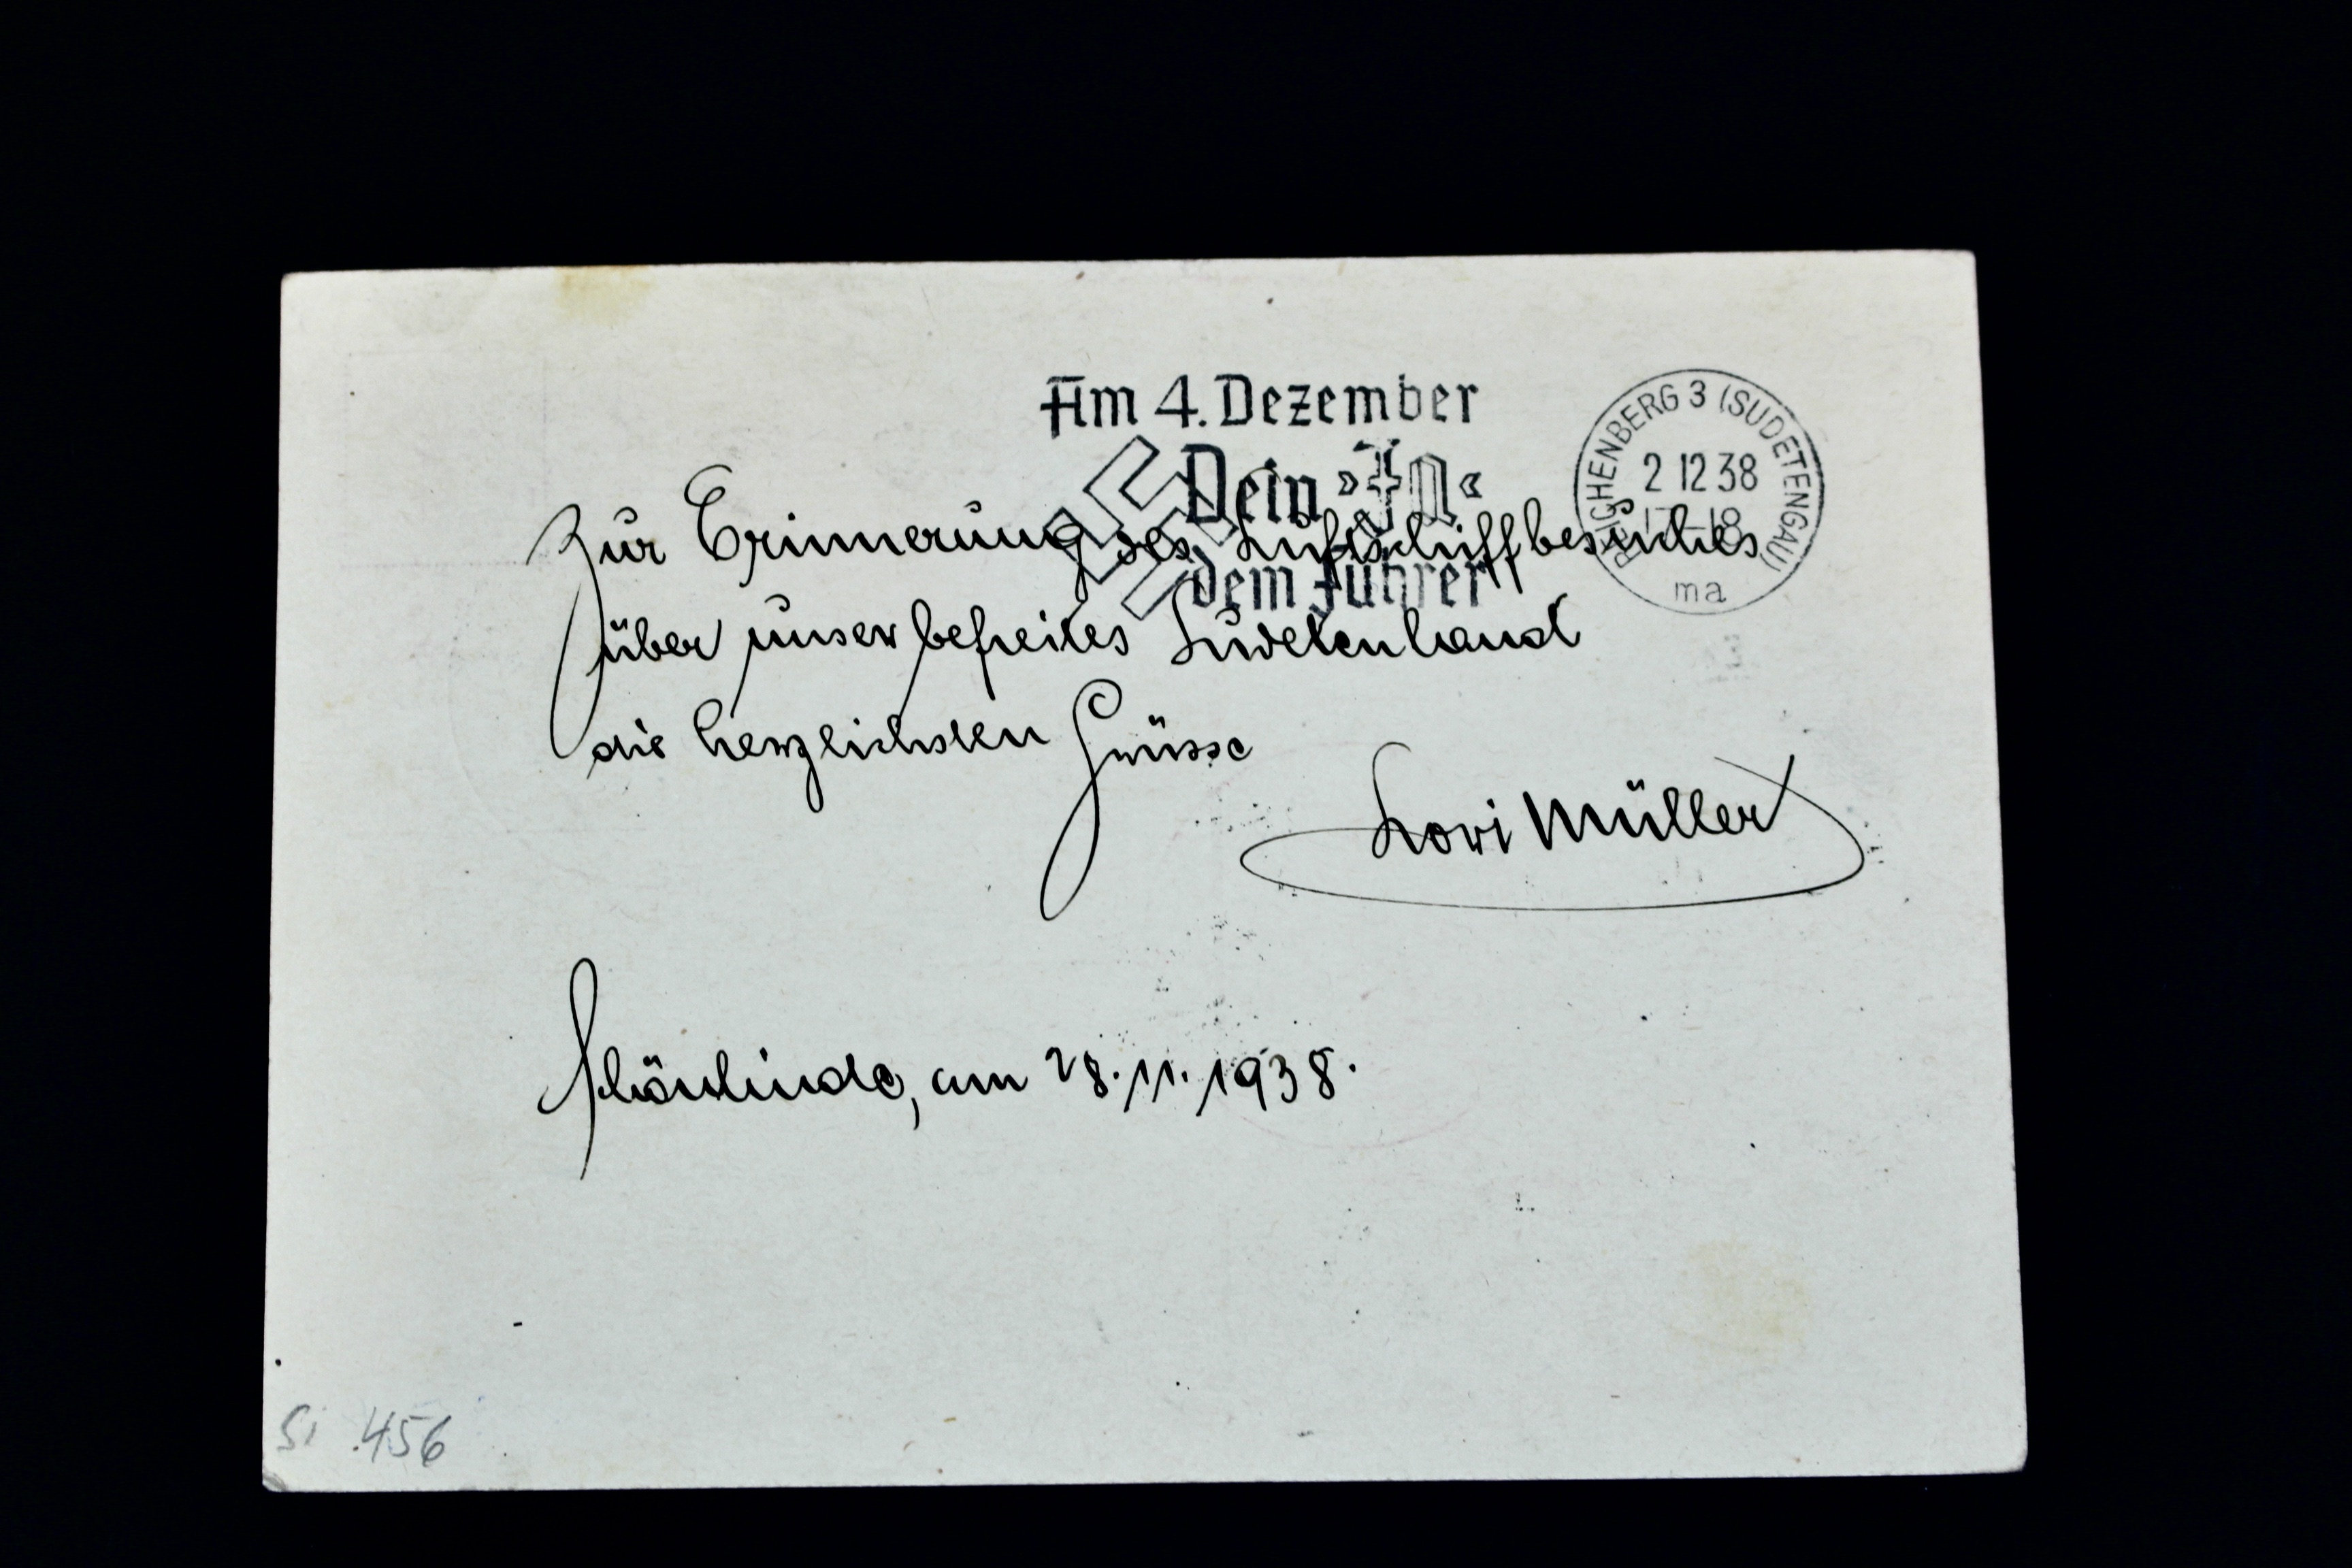 Am 4. Dezember
Dein »Ja«
dem Führer
REICHENBERG 3 (SUDETENGAU)
2 12 38
17-18
ma
Zur Erinnerung des Luftschiffbesuches
über unser befreites Sudetenland
die herzlichsten Grüsse
Lori Müller
Schönlinde, am 28.11.1938.
Si 456